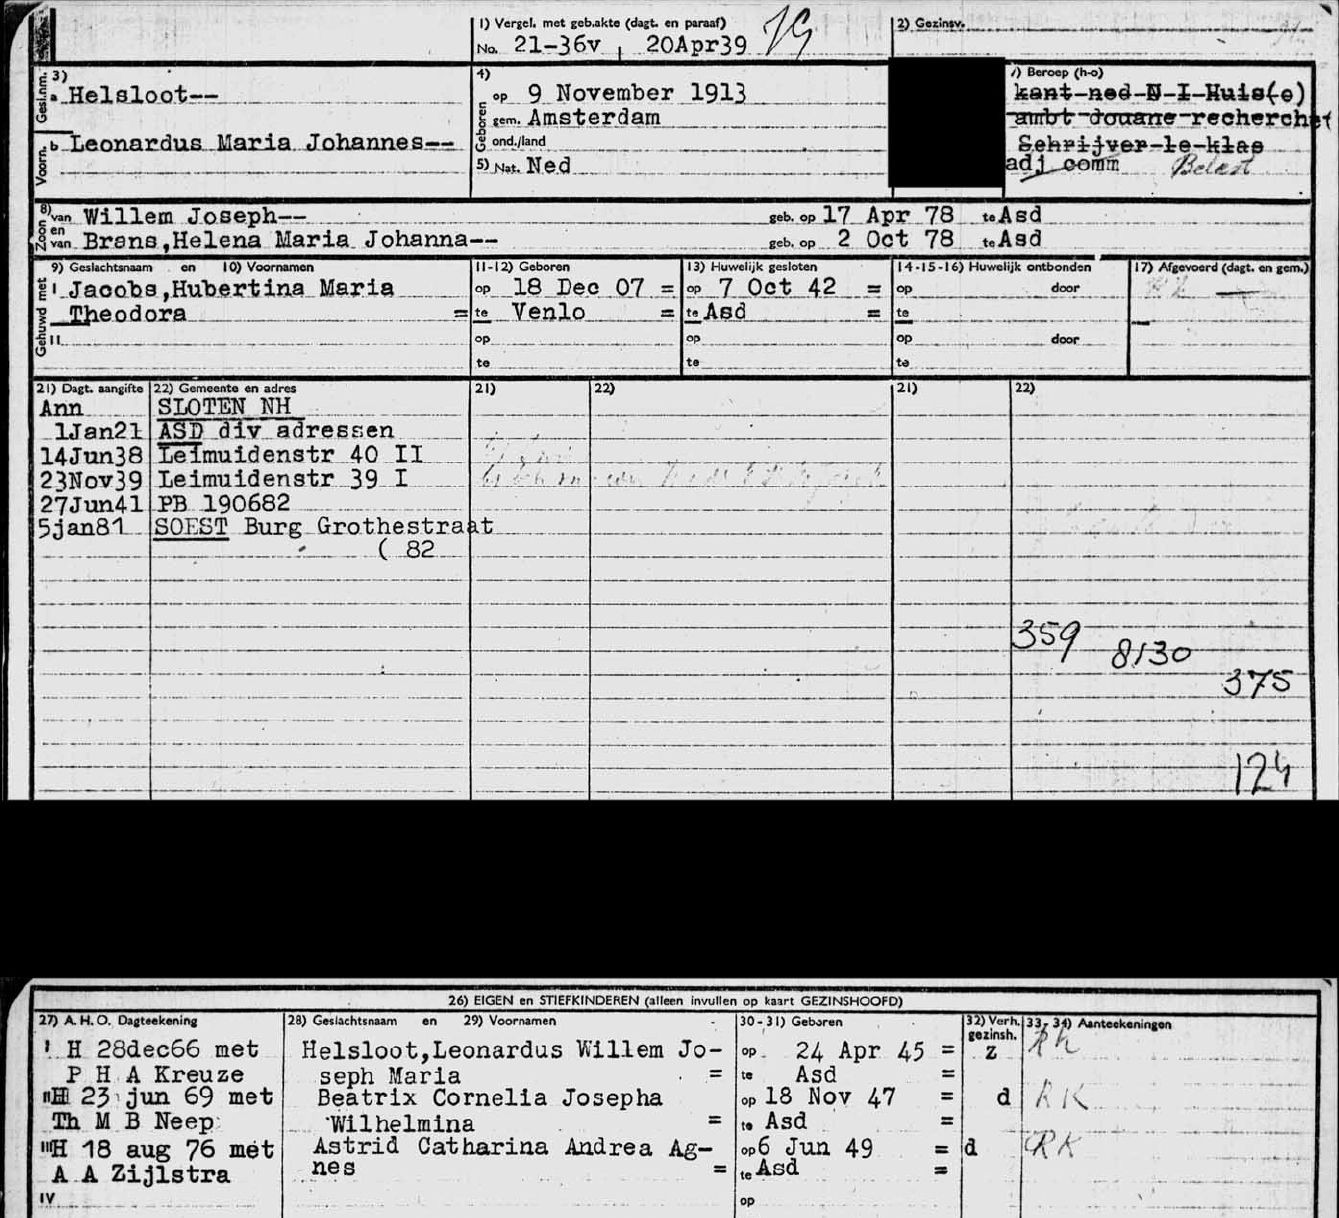 1) Vergel. met geb.akte (dagt. en paraaf)
No. 21-36v , 20Apr39
2) Gezinsv.
Gesl.nm.
3)
a Helsloot--
Voorn.
b Leonardus Maria Johannes--
4)
Geboren
op 9 November 1913
gem. Amsterdam
ond./land
5) Nat. Ned
7) Beroep (h-o)
kant ned N I Huis(e)
ambt douane recherchet
Schrijver 1e klas
adj comm
8) Zoon van Willem Joseph-- geb. op 17 Apr 78 te Asd
en van Brans,Helena Maria Johanna-- geb. op 2 Oct 78 te Asd
Gehuwd met
9) Geslachtsnaam en 10) Voornamen
11-12) Geboren
13) Huwelijk gesloten
14-15-16) Huwelijk ontbonden
17) Afgevoerd (dagt. en gem.)
I Jacobs,Hubertina Maria op 18 Dec 07 = op 7 Oct 42 = op door
Theodora = te Venlo = te Asd = te
II op op op door
te te te
21) Dagt. aangifte 22) Gemeente en adres 21) 22) 21) 22)
Ann SLOTEN NH
1Jan21 ASD div adressen
14Jun38 Leimuidenstr 40 II
23Nov39 Leimuidenstr 39 I
27Jun41 PB 190682
5jan81 SOEST Burg Grothestraat
( 82
359
8130
375
124
26) EIGEN en STIEFKINDEREN (alleen invullen op kaart GEZINSHOOFD)
27) A.H.O. Dagteekening 28) Geslachtsnaam en 29) Voornamen 30-31) Geboren 32) Verh. gezinsh. 33-34) Aanteekeningen
I H 28dec66 met Helsloot,Leonardus Willem Jo- op 24 Apr 45 = z RK
P H A Kreuze seph Maria = te Asd =
II H 23 jun 69 met Beatrix Cornelia Josepha op 18 Nov 47 = d RK
Th M B Neep Wilhelmina = te Asd =
III H 18 aug 76 met Astrid Catharina Andrea Ag- op 6 Jun 49 = d RK
A A Zijlstra nes = te Asd =
IV op